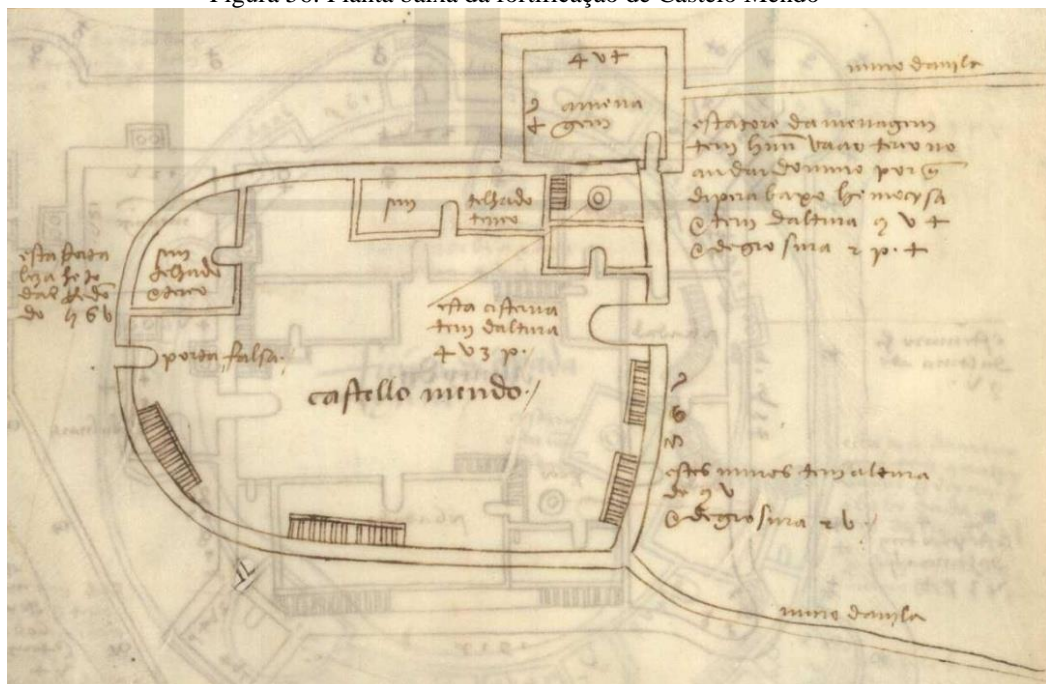 Figura 56: Planta baixa da fortificação de Castelo Mendo
4 v +
amena
gem
muro da vila
esta tore da menagem
tem hum vaao tereo no
andar do muro por
dipera baxo he mocysa
e tem daltura 9 v +
e de grosura 2 p. +
sem
telhado
tereo
sem
telhado
e tereo
esta
do
porta falsa.
esta cisterna
tem daltura
4 v 3 p.
castello mendo.
estes muros tem altura
de 9 v
e de grosura 2 v.
muro da vila